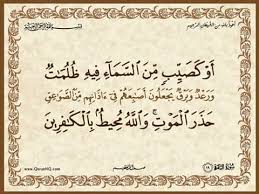 أعوذ بالله من الشيطان الرجيم
أَوْ كَصَيِّبٍ مِّنَ ٱلسَّمَآءِ فِيهِ ظُلُمَٰتٌ
وَرَعْدٌ وَبَرْقٌ يَجْعَلُونَ أَصَٰبِعَهُمْ فِىٓ ءَاذَانِهِم مِّنَ ٱلصَّوَٰعِقِ
حَذَرَ ٱلْمَوْتِ وَٱللَّهُ مُحِيطٌۢ بِٱلْكَٰفِرِينَ
سورة البقرة (١٩)
www.QuranHQ.com